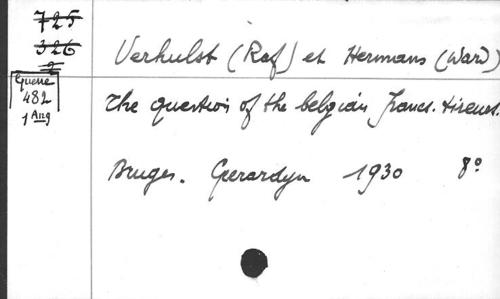 725
326
2
Guerre
482
1 Ang
Verhulst (Raf) et Hermans (Ward)
The question of the belgian francs-tireurs.
Bruges. Gerardyn 1930 8°